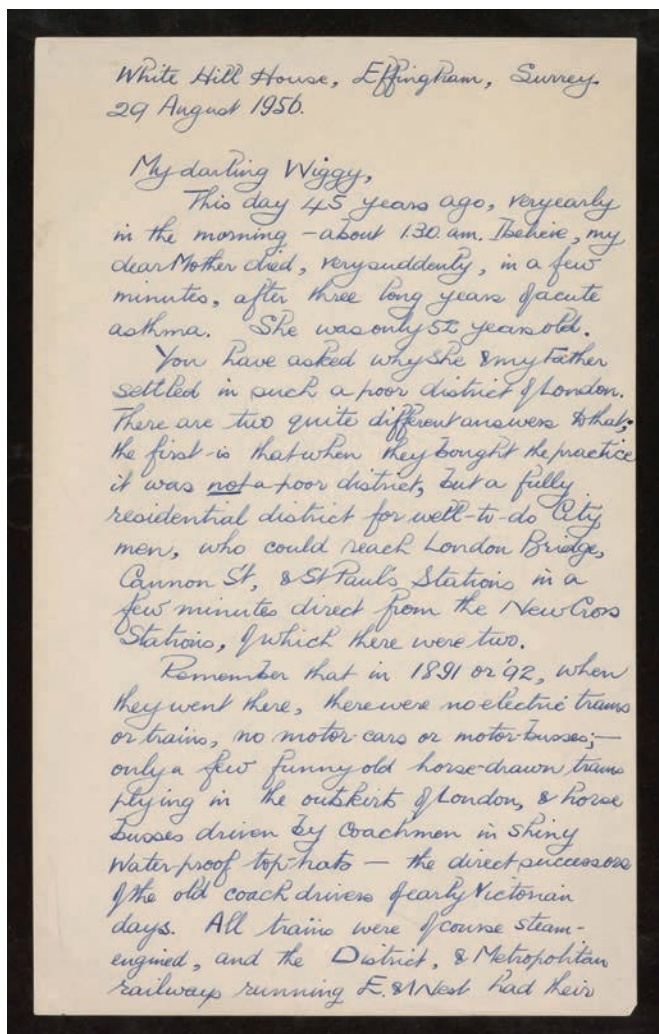 White Hill House, Effingham, Surrey.
29 August 1956.
My darling Wiggy,
This day 45 years ago, very early
in the morning - about 1.30. am. I believe, my
dear Mother died, very suddenly, in a few
minutes, after three long years of acute
asthma. She was only 52 years old.
You have asked why she & my Father
settled in such a poor district of London.
There are two quite different answers to that;
the first is that when they bought the practice
it was not a poor district, but a fully
residential district for well-to-do City
men, who could reach London Bridge,
Cannon St, & St Paul's Stations in a
few minutes direct from the New Cross
Stations, of which there were two.
Remember that in 1891 or '92, when
they went there, there were no electric trams
or trains, no motor-cars or motor-busses; —
only a few funny old horse-drawn trams
plying in the outskirts of London, & horse
busses driven by coachmen in shiny
water-proof top-hats — the direct successors
of the old coach drivers of early Victorian
days. All trains were of course steam-
engined, and the District, & Metropolitan
railways running E. & West had their